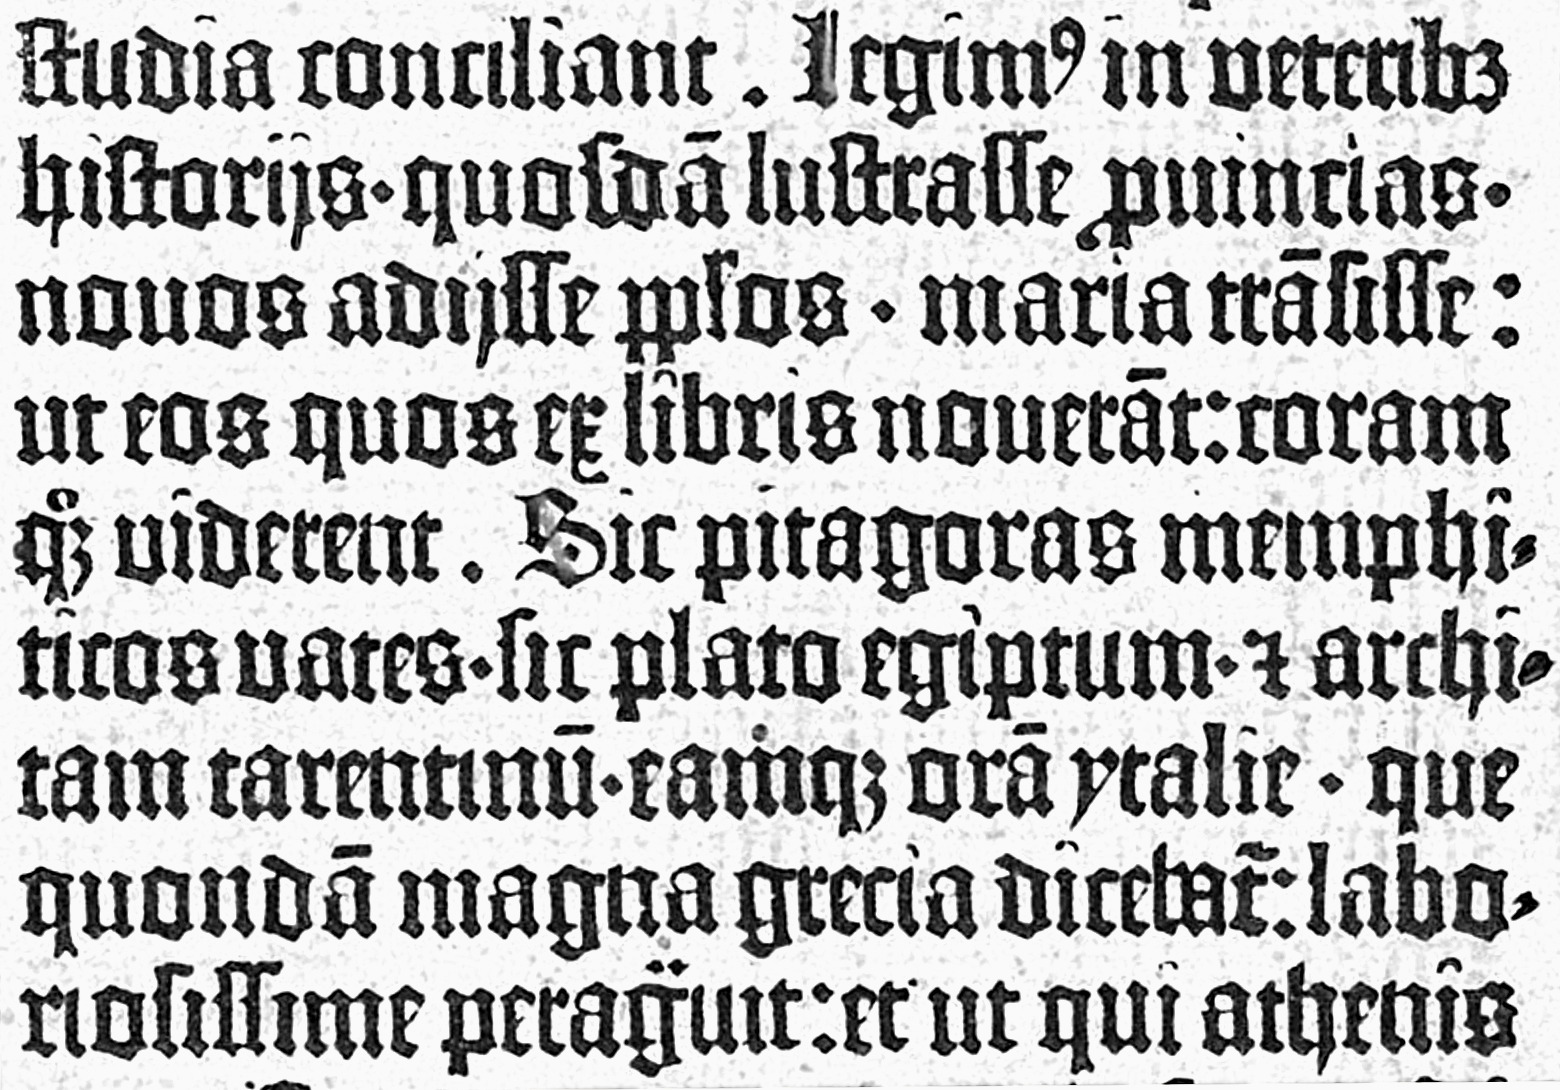 ſtudia conciliant . Legimꝰ in veteribꝫ
hiſtorijs·quoſdā luſtraſſe ꝓuincias·
nouos adijſſe ppl̓os · maria trāſiſſe:
ut eos quos ex libris nouerāt:coram
qꝫ viderent . Sic pitagoras memphi⸗
ticos vates·ſic plato egiptum·⁊ archi⸗
tam tarentinū·eamqꝫ orā ytalie · que
quondā magna grecia dicebat᷑:labo⸗
rioſiſſime peragͣuit:et ut qui athenis